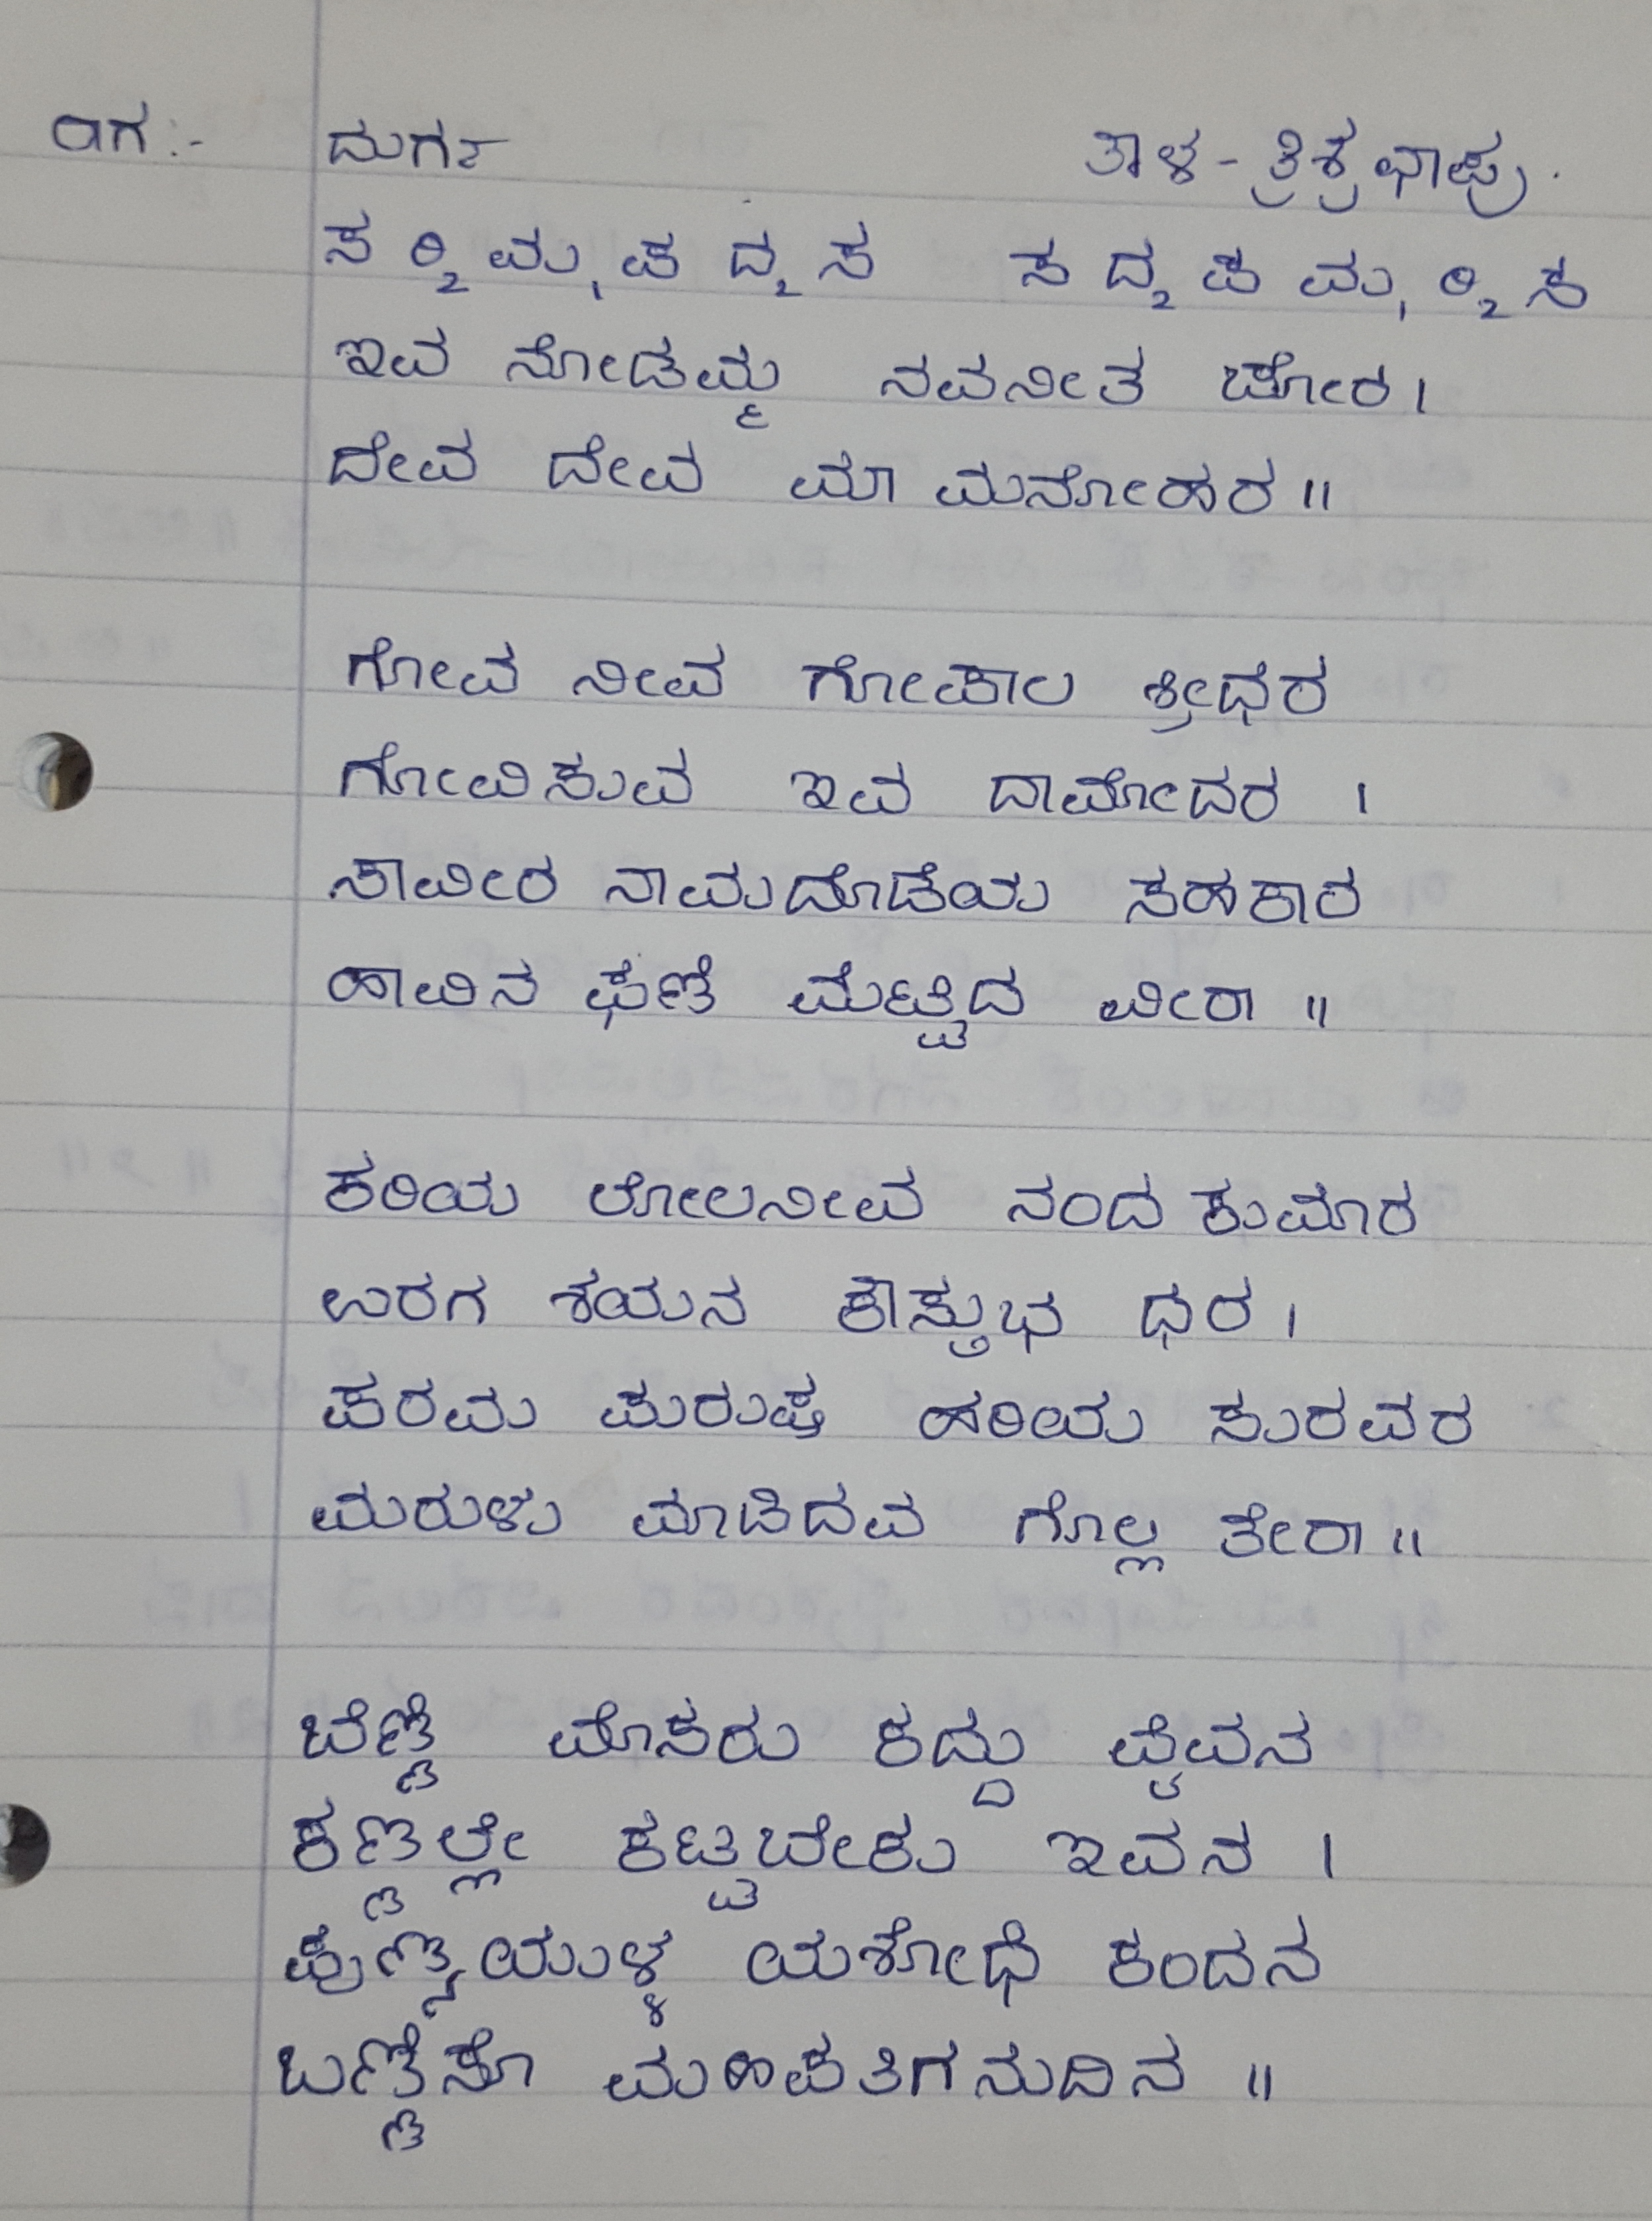 ರಾಗ:- ದುರ್ಗಾ ತಾಳ - ತ್ರಿಶ್ರಛಾಪು.
ಸ ರಿ₂ ಮ₁ ಪ ದ₂ ಸ ಸ ದ₂ ಪ ಮ₁ ರಿ₂ ಸ
ಇವ ನೋಡಮ್ಮ ನವನೀತ ಚೋರ ।
ದೇವ ದೇವ ಮಾ ಮನೋಹರ ॥
ಗೋವ ನೀವ ಗೋಪಾಲ ಶ್ರೀಧರ
ಗೋವಿಸುವ ಇವ ದಾಮೋದರ ।
ಸಾವೀರ ನಾಮದೊಡೆಯ ಸಹಕಾರ
ಹಾವಿನ ಫಣಿ ಮೆಟ್ಟಿದ ವೀರಾ ॥
ಕರಿಯ ಲೋಲನೀವ ನಂದ ಕುಮಾರ
ಉರಗ ಶಯನ ಕೌಸ್ತುಭ ಧರ ।
ಪರಮ ಪುರುಷ ಹರಿಯ ಸುರವರ
ಮರುಳು ಮಾಡಿದವ ಗೊಲ್ಲ ತೇರಾ ॥
ಬೆಣ್ಣೆ ಮೊಸರು ಕದ್ದು ವೈವನ
ಕಣ್ಣಲ್ಲೇ ಕಟ್ಟಬೇಕು ಇವನ ।
ಪುಣ್ಯಯುಳ್ಳ ಯಶೋಧೆ ಕಂದನ
ಬಣ್ಣಿಸೊ ಮಹಿಪತಿಗನುದಿನ ॥